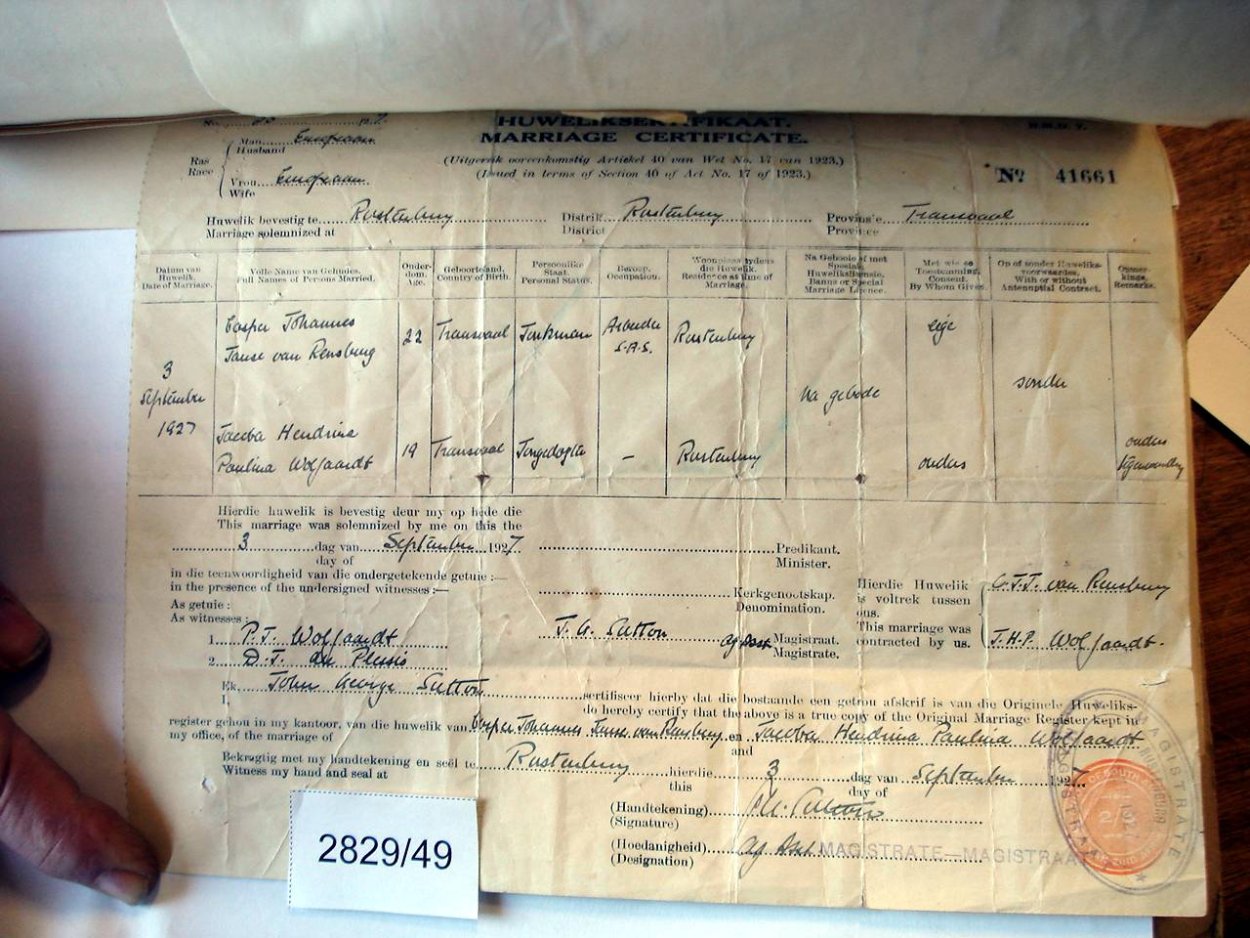 HUWELIKSERTIFIKAAT.
MARRIAGE CERTIFICATE.
(Uitgereik ooreenkomstig Artiekel 40 van Wet No. 17 van 1923.)
(Issued in terms of Section 40 of Act No. 17 of 1923.)
No 41661
Ras
Race
Man
Husband
Vrou
Wife
Huwelik bevestig te Rustenburg Distrik Rustenburg Provinsie Transvaal
Marriage solemnized at District Province
Datum van Huwelik.
Date of Marriage.
Volle Name van Gehuudes.
Full Names of Persons Married.
Ouderdom.
Age.
Geboorteland.
Country of Birth.
Persoonlike Staat.
Personal Status.
Beroep.
Occupation.
Woonplaas tydens die Huwelik.
Residence at time of Marriage.
Na Gebooie of met Spesiale Huwelikslisensie.
Banns or Special Marriage Licence.
Met wie se Toestemming.
Consent By Whom Given.
Op of sonder Huweliksvoorwaardes.
With or without Antenuptial Contract.
Opmerkings.
Remarks.
3 September 1927
Casper Johannes
Janse van Rensburg
22 Transvaal Jonkman Arbeider S.A.S. Rustenburg
eie
Na gebooie
sonder
Jacoba Hendrina
Paulina Wolfaardt
19 Transvaal Jongedogter - Rustenburg
ouders
ouders
Hierdie huwelik is bevestig deur my op hede die
This marriage was solemnized by me on this the
3 dag van September 1927 Predikant.
day of Minister.
in die teenwoordigheid van die ondergetekende getuie :—
in the presence of the undersigned witnesses :—
Kerkgenootskap.
Denomination.
As getuie :
As witnesses :
1. P.J. Wolfaardt
2. D.J. du Plessis
J. G. Sutton Ag Asst Magistraat.
Magistrate.
Hierdie Huwelik
is voltrek tussen
ons.
This marriage was
contracted by us.
C.J.J. van Rensburg
J.H.P. Wolfaardt.
Ek, John George Sutton sertifiseer hierby dat die bostaande een getrou afskrif is van die Originele Huweliks-
I, do hereby certify that the above is a true copy of the Original Marriage Register kept in
register gehou in my kantoor, van die huwelik van Casper Johannes Janse van Rensburg en Jacoba Hendrina Paulina Wolfaardt
my office, of the marriage of and
Bekragtig met my handtekening en seël te Rustenburg hierdie 3 dag van September 1927
Witness my hand and seal at this day of
(Handtekening) J.G. Sutton
(Signature)
(Hoedanigheid) Ag Asst. MAGISTRATE—MAGISTRAAT
(Designation)
2829/49